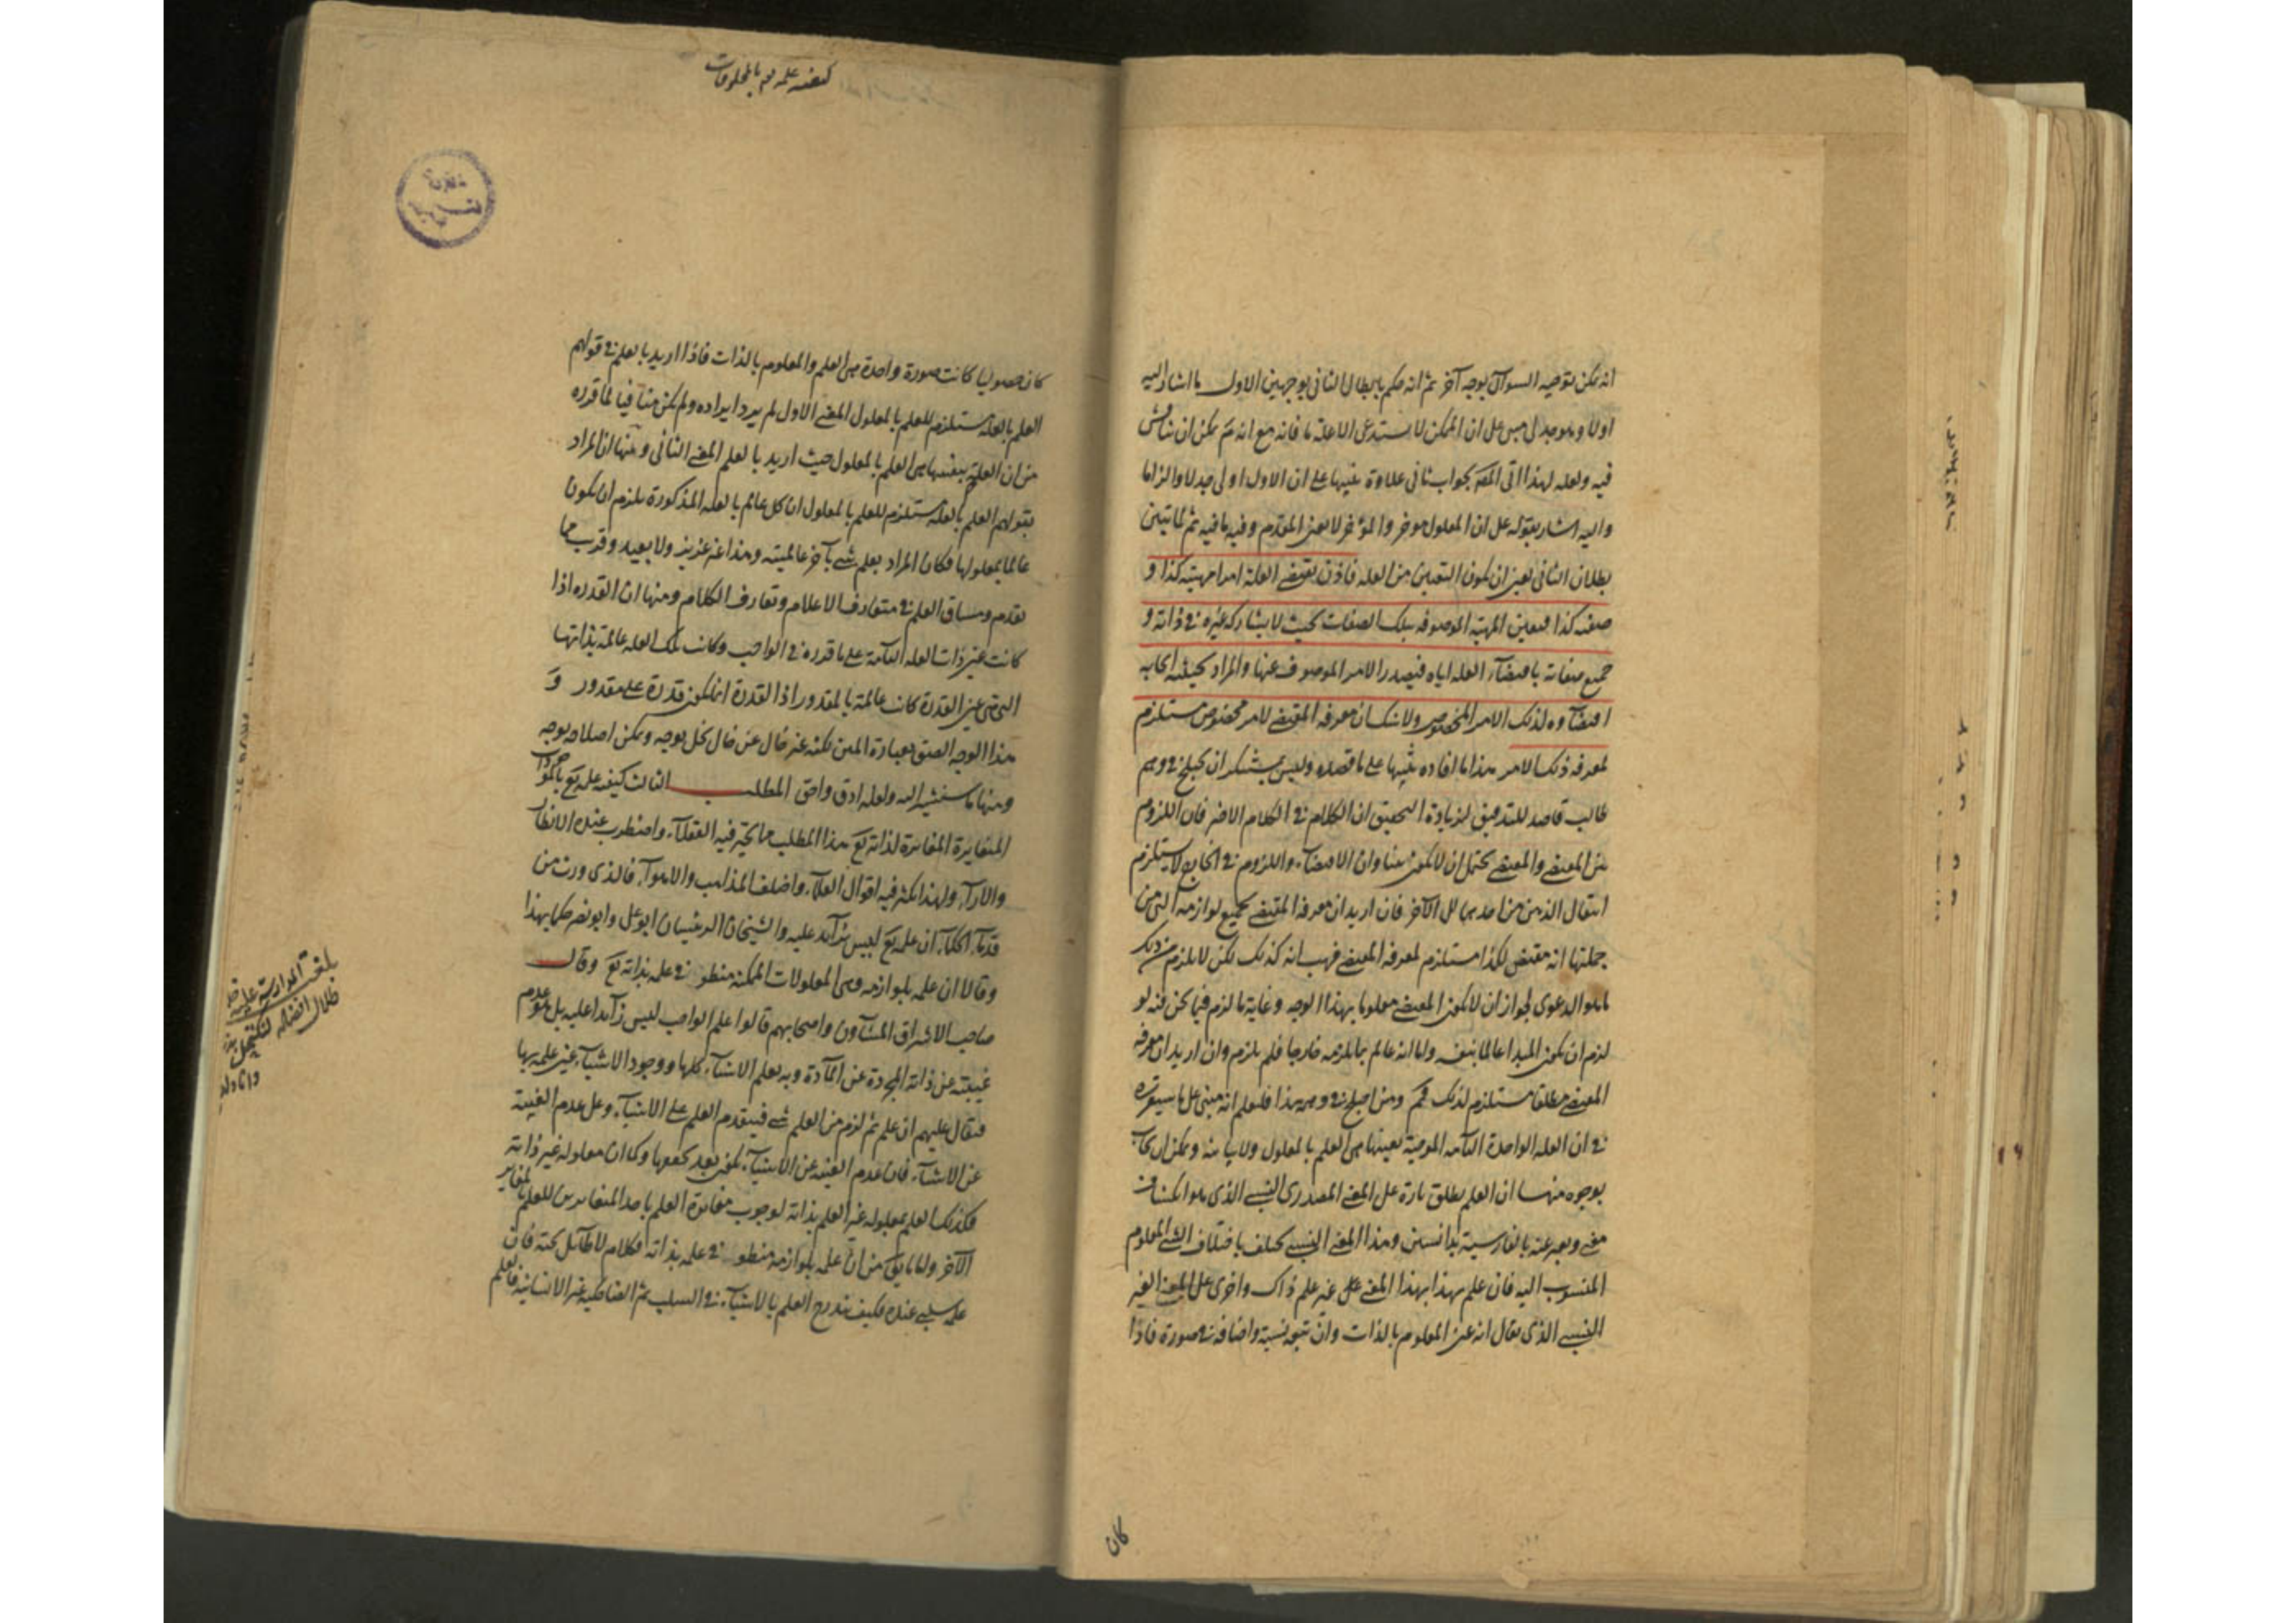 انه يمكن توجيه السوال بوجه آخر ثم انه حكم بابطال الثانى بوجهين الاول ما اشار اليه
اولا وهو جدلى مبنى على ان الممكن لا يستدعى الا علة ما فانه مع انه يمكن ان يناقش
فيه ولعله لهذا اتى المص بجواب ثانى علاوة تنبيها على ان الاول اولى جدلا والزاما
واليه اشار بقوله على ان المعلول موخر والمؤخر لا يعين المقدم وفيه ما فيه ثم لما تبين
بطلان الثانى تعين ان يكون التعين من العلة فاذن يقتضى العلة امرا مهيته كذا و
صفته كذا فتعين المهية الموصوفة بتلك الصفات بحيث لا يشاركه غيره فى ذاته و
جميع صفاته باقتضاء العلة اياه فيصدر الامر الموصوف عنها والمراد بحيثية ايجابه
اقتضاؤه لذلك الامر المخصوص ولا شك ان معرفة المقتضى لامر مخصوص مستلزم
لمعرفة ذلك الامر هذا ما افاده تنبيها على ما قصده وليس بمستنكر ان يختلج فى وهم
طالب قاصد للتدقيق لزيادة التحقيق ان الكلام فى الكلام الاخير فان اللزوم
بين المقتضى والمقتضى يحتمل ان لا يكون بينا وان الاقتضاء واللزوم فى الخارج لا يستلزم
انتقال الذهن من احدهما الى الآخر فان اريد ان معرفة المقتضى بجميع لوازمه التى من
جملتها انه مقتض لكذا مستلزم لمعرفة المقتضى فهب انه كذلك لكن لا يلزم من ذلك
ما هو الدعوى لجواز ان لا يكون المقتضى معلوما بهذا الوجه وغاية ما لزم فيما نحن فيه لو
لزم ان يكون المبدا عالما بنفسه واما انه عالم بما يلزمه خارجا فلم يلزم وان اريد ان معرفة
المقتضى مطلقا مستلزم لذلك فمم ومن اختلج فى وهمه هذا فليعلم انه مبنى على ما سيقرره
فى ان العلة الواحدة التامة الموجبة بعينها هى العلم بالمعلول ويمكن ان يجاب
بوجوه منها ان العلم يطلق تارة على المعنى المصدرى النسبى الذى هو انكشاف
معنى ويعبر عنه بالفارسية بدانستن وهذا المعنى النسبى يختلف باختلاف الشئ المعلوم
المنسوب اليه فان علم هذا بهذا المعنى غير علم ذاك واخرى على المعنى الغير
النسبى الذى يقال انه عين المعلوم بالذات وان تبعه نسبة واضافة فى صورة فاذا
كان
كيفية علمه تع بالمخلوقات
كان حصوليا كانت صورة واحدة هى العلم والمعلوم بالذات فاذا اريد بالعلم فى قولهم
العلم بالعلة يستلزم للعلم بالمعلول المعنى الاول لم يرد ايراده ولم يكن منافيا لما قرره
من ان العلة بنفسها هى العلم بالمعلول حيث اريد بالعلم المعنى الثانى ومنها ان المراد
بقولهم العلم بالعلة يستلزم للعلم بالمعلول ان كل عالم بالعلة المذكورة يلزم ان يكون
عالما بمعلولها فكان المراد بعلم شئ بآخر عالميته وهذا غير عزيز ولا بعيد وقريب مما
تقدم ومساق العلم فى متعارف الاعلام وتعارف الكلام ومنها ان القدرة اذا
كانت عين ذات العلة التامة على ما قدره فى الواجب وكانت تلك العلة عالمة بذاتها
التى هى عين القدرة كانت عالمة بالمقدور اذ القدرة انما يكون قدرة على مقدور و
هذا الوجه الصق بعبارة المتن لكنه غير خال عن خلل بوجه ويمكن اصلاحه بوجه
ومنها ما سنشير اليه ولعله ادق واحق المطلب الثالث كيفية علمه تع بالموجودات
المتغايرة المغايرة لذاته تع هذا المطلب مما تحير فيه العقلاء واضطرب عنده الانظار
والاراء ولهذا كثر فيه اقوال العلماء واختلف المذاهب والاهواء فالذى ورث من
قدماء الحكماء ان علمه تع ليس بزائد عليه والشيخان الرئيسان ابو على وابو نصر حكما بهذا
وقالا ان علمه بلوازمه وهى المعلولات الممكنة منطو فى علمه بذاته تع وقال
صاحب الاشراق المشاؤن واصحابهم قالوا علم الواجب ليس زائدا عليه بل هو عدم
غيبته عن ذاته المجردة عن المادة وبه يعلم الاشياء كلها ووجود الاشياء عين علمه بها
فيقال عليهم ان علم ثم لزم من العلم شئ فيتقدم العلم على الاشياء وعلى عدم الغيبة
عن الاشياء فان عدم الغيبة عن الاشياء يكون بعد تحققها وكما ان معلوله غير ذاته
فكذلك العلم بمعلوله غير العلم بذاته لوجوب مغايرة العلم باحد المتغايرين للعلم بالمغاير
الآخر واما ما يق من ان علمه بلوازمه منطو فى علمه بذاته فكلام لا طائل تحته فان
علمه سلبى عنده فكيف يندرج العلم بالاشياء فى السلب ثم الضاحكية غير الانسانية فالعلم
بلغت المدارسة عليه